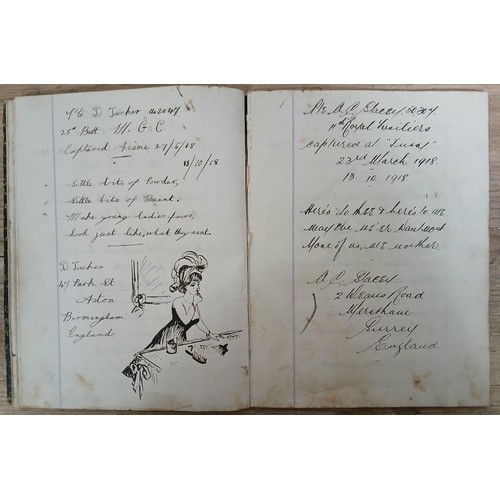 Pte D Tucker 142047
25th Batt M. G. C
Captured Aisne 27/5/18
13/10/18
Little bits of Powder,
Little bits of Paint.
Make young ladies faces,
Look just like, what they aint.
D Tucker
47 Park St
Aston
Birmingham
England
Pte A. C. Stacey.
11th Royal Fusiliers
captured at "Jussy"
23rd March 1918.
13. 10. 1918
Here's to thee & here's to me
May we ne'er
More of us, me
A. C. Stacey
2 Road
Merstham
Surrey
England